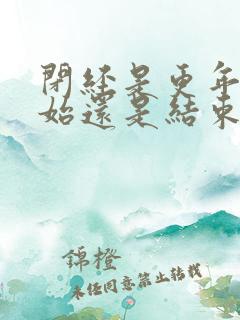 閉經是更年
始還是結束
錦橙
未经同意禁止转载